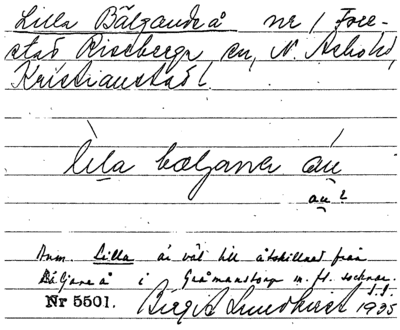 Lilla Bälgande å nr 1 Fore-
stad Riseberga sn, N. Åsbohd,
Kristianstad l.
lila bæljana áu
au?
Anm. Lilla är väl till åtskillnad från
Bäljane å i Gråmanstorp m. fl. socknar.
Nr 5501. Birgit Lundkvist 1935